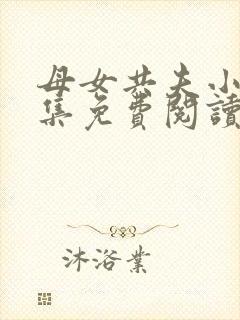 母女共夫小
集免費閱讀
沐浴業